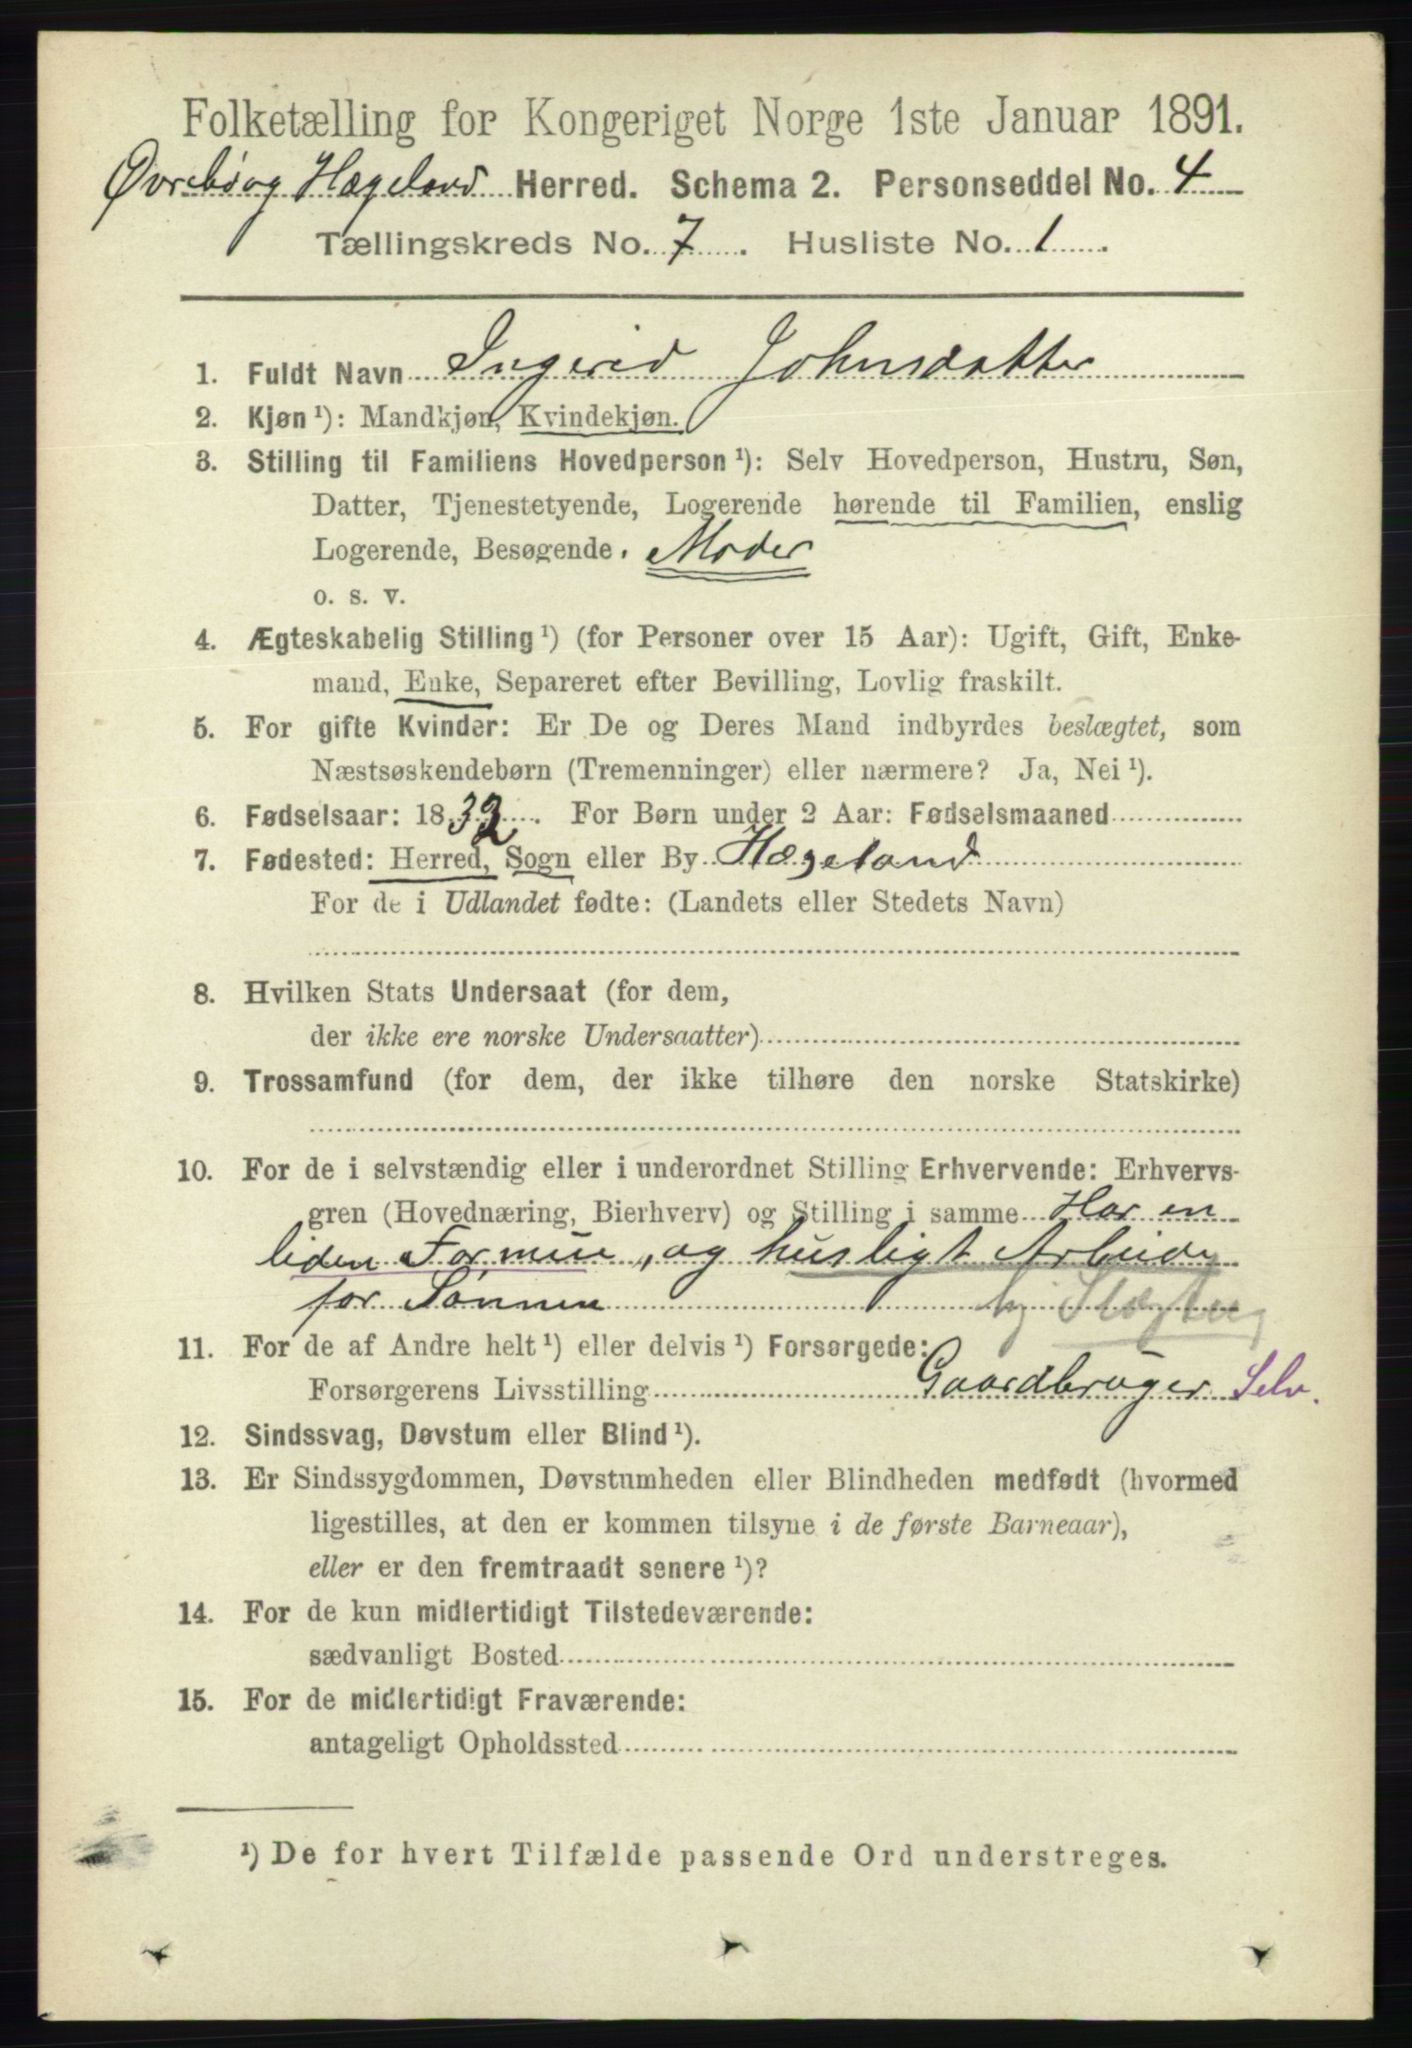 Folketælling for Kongeriget Norge 1ste Januar 1891.
Øvrebø og Hægeland Herred. Schema 2. Personseddel No. 4
Tællingskreds No. 7. Husliste No. 1.
1. Fuldt Navn Ingerid Johnsdatter
2. Kjøn ¹): Mandkjøn, Kvindekjøn.
3. Stilling til Familiens Hovedperson ¹): Selv Hovedperson, Hustru, Søn,
Datter, Tjenestetyende, Logerende hørende til Familien, enslig
Logerende, Besøgende. Moder
o. s. v.
4. Ægteskabelig Stilling ¹) (for Personer over 15 Aar): Ugift, Gift, Enke-
mand, Enke, Separeret efter Bevilling, Lovlig fraskilt.
5. For gifte Kvinder: Er De og Deres Mand indbyrdes beslægtet, som
Næstsøskendebørn (Tremenninger) eller nærmere? Ja, Nei ¹).
6. Fødselsaar: 1832. For Børn under 2 Aar: Fødselsmaaned
7. Fødested: Herred, Sogn eller By Hægeland
For de i Udlandet fødte: (Landets eller Stedets Navn)
8. Hvilken Stats Undersaat (for dem,
der ikke ere norske Undersaatter)
9. Trossamfund (for dem, der ikke tilhøre den norske Statskirke)
10. For de i selvstændig eller i underordnet Stilling Erhvervende: Erhvervs-
gren (Hovednæring, Bierhverv) og Stilling i samme Har en
liden Formue, og husligt Arbeide
for Sønnen hj Slægtng
11. For de af Andre helt ¹) eller delvis ¹) Forsørgede:
Forsørgerens Livsstilling Gaardbruger Selv.
12. Sindssvag, Døvstum eller Blind ¹).
13. Er Sindssygdommen, Døvstumheden eller Blindheden medfødt (hvormed
ligestilles, at den er kommen tilsyne i de første Barneaar),
eller er den fremtraadt senere ¹)?
14. For de kun midlertidigt Tilstedeværende:
sædvanligt Bosted
15. For de midlertidigt Fraværende:
antageligt Opholdssted
¹) De for hvert Tilfælde passende Ord understreges.